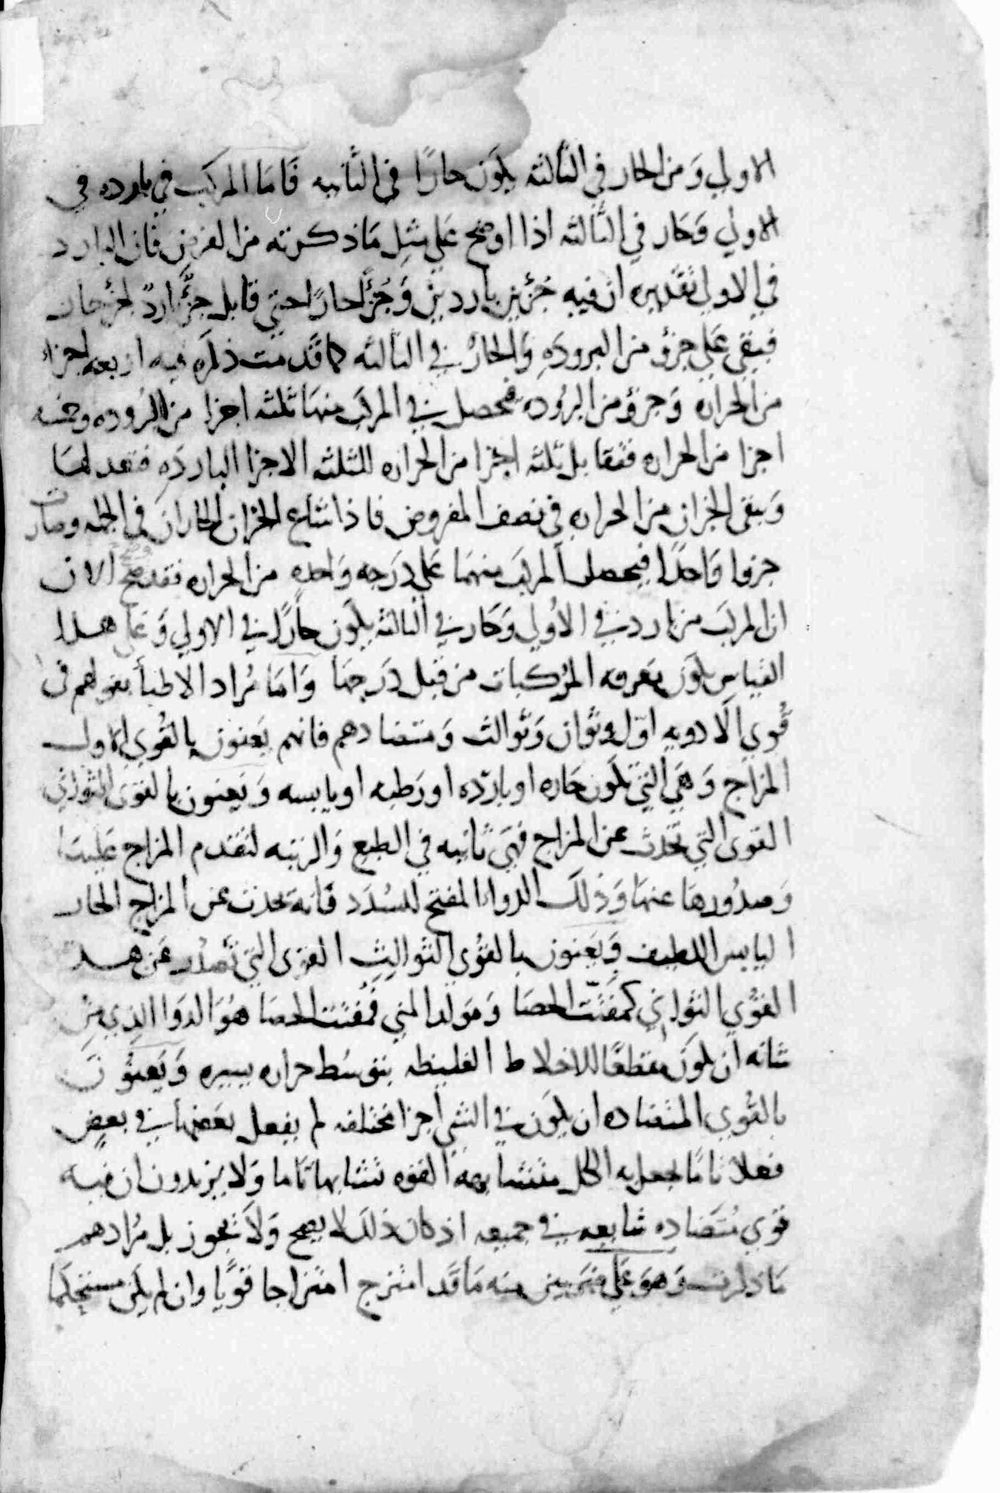 الاولي ومن الحار في الثالثه يكون حارًا في الثانيه فاما المركب في بارده في
الاولي وحار في الثالثه اذا اوضح علي مثل ما ذكرته من الفرض فان البارد
في الاولي تقديره ان فيه جزئين باردين وجزًا حارًا حتي قابل جزًا باردً لجز حار
فبقي علي جزو من البروده والحار في الثالثه كما قدمت ذكره فيه اربعه اجزاء
من الحراره وجزو من البروده فحصل في المركب منهما ثلثه اجزا من البروده وخمسه
اجزا من الحراره فتقابل ثلثه اجزا من الحراره للثلثه الاجزا البارده فتعدلها
وبقي الجزان من الحراره في نصف المفروض فاذا شاع الجزان الحاران في الجمله وصارت
جزوا واحدًا فيحصل المركب منهما علي درجه واحده من الحراره فقد صح الان
ان المركب من بارد في الاولي وحار في الثالثه يكون حارًا في الاولي وعلي هذا
القياس يكون معرفه المركبات من قبل درجها واما مراد الاطبا بقولهم في
قوي الادويه اول وثوان وثوالث ومتضادهم فانهم يعنون بالقوي الاول
المزاج وهي التي تكون حاره او بارده او رطبه او يابسه ويعنون بالقوي الثواني
القوي التي تحدث عن المزاج فهي ثانيه في الطبع والرتبه لتقدم المزاج عليها
وصدورها عنها وذلك الدواء المفتح للسدد فانه يحدث عن المزاج الحار
اليابس اللطيف ويعنون بالقوي الثوالث القوي التي تصدر عن هذه
القوي الثواني كمفتت الحصا ومولد المني فمفتت الحصا هو الدوا الذي من
شانه ان يكون مقطعًا للاخلاط الغليظه بتوسط حراره يسيره ويعنون
بالقوي المتضاده ان يكون في الشي اجزا مختلفه لم يفعل بعضها في بعض
فعلا تامًا لجعل به الكل متشابهه القوه تشابها تاما ولا يريدون ان فيه
قوي متضاده شايعه في جميعه اذ كان ذلك لا يصح ولا يجوز بل مرادهم
ما ذكرت وهو علي ضربين منه ما قد امتزج امتزاجا قويًا وان لم يكن مستحكما